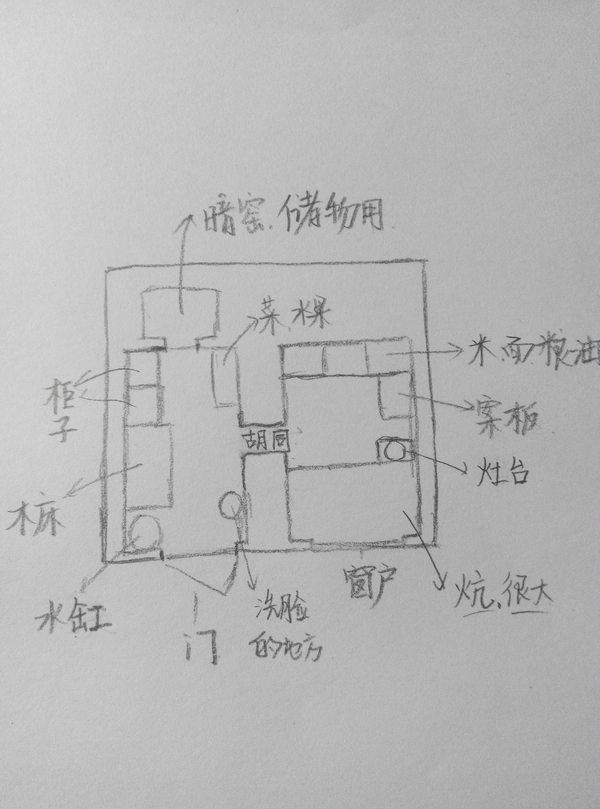 暗窑、储物用
菜、水果
米、面、粮、油
柜
子
案板
胡同
灶台
床
水缸
门
洗脸
的地方
窗户
炕、很大